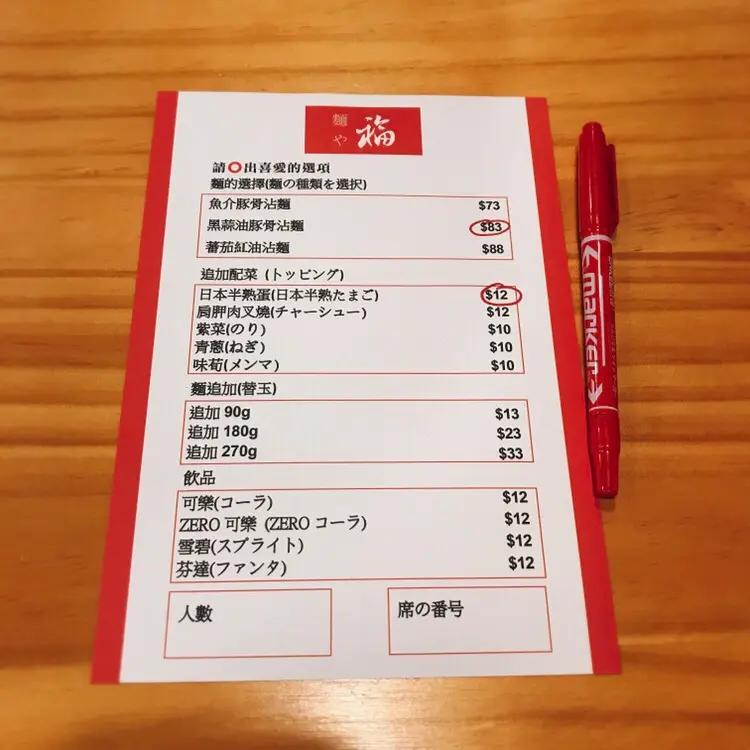 麺や 福
請⭕出喜愛的選項
麵的選擇(麵の種類を選択)
魚介豚骨沾麵 $73
黑蒜油豚骨沾麵 $83
蕃茄紅油沾麵 $88
追加配菜 (トッピング)
日本半熟蛋(日本半熟たまご) $12
肩胛肉叉燒(チャーシュー) $12
紫菜(のり) $10
青蔥(ねぎ) $10
味荀(メンマ) $10
麵追加(替玉)
追加 90g $13
追加 180g $23
追加 270g $33
飲品
可樂(コーラ) $12
ZERO 可樂 (ZERO コーラ) $12
雪碧(スプライト) $12
芬達(ファンタ) $12
人數 席の番号
marker